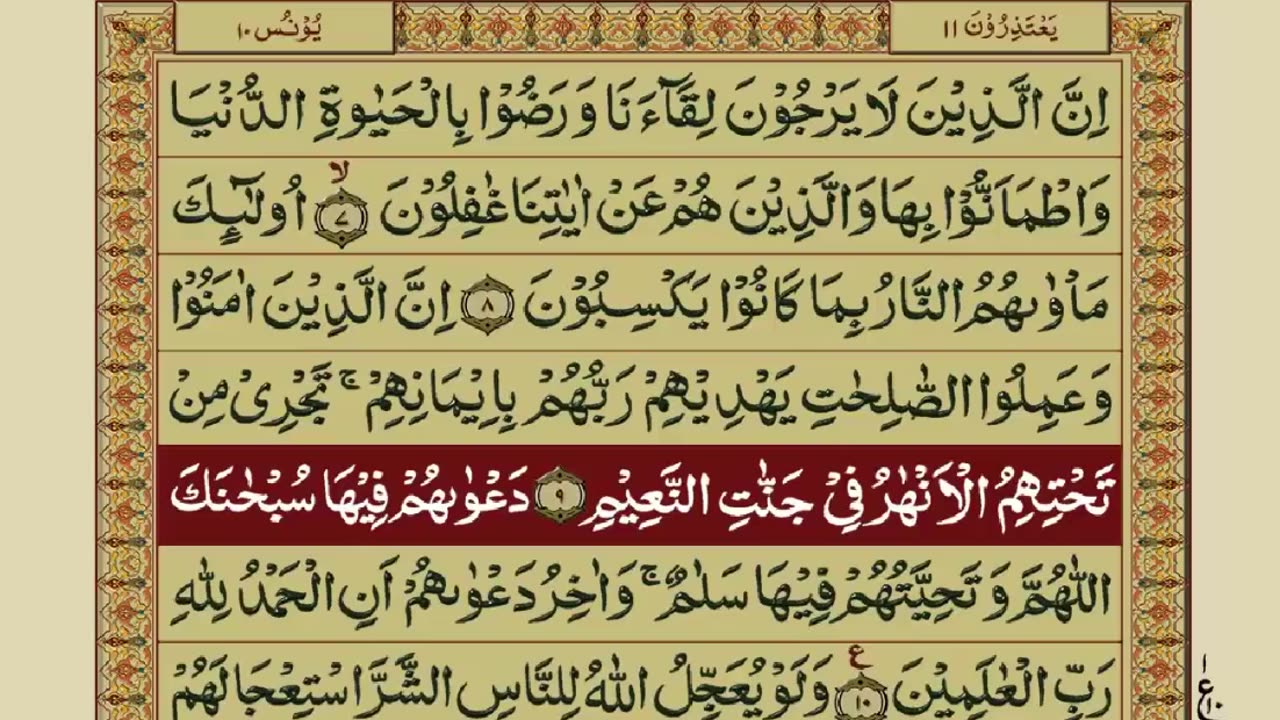 یَعْتَذِرُوْنَ ۱۱
یُوْنُس ۱۰
اِنَّ الَّذِیْنَ لَا یَرْجُوْنَ لِقَآءَنَا وَ رَضُوْا بِالْحَیٰوةِ الدُّنْیَا
وَ اطْمَاَنُّوْا بِهَا وَ الَّذِیْنَ هُمْ عَنْ اٰیٰتِنَا غٰفِلُوْنَ ۙ﴿۷﴾ اُولٰٓىِٕكَ
مَاْوٰىهُمُ النَّارُ بِمَا كَانُوْا یَكْسِبُوْنَ ﴿۸﴾ اِنَّ الَّذِیْنَ اٰمَنُوْا
وَ عَمِلُوا الصّٰلِحٰتِ یَهْدِیْهِمْ رَبُّهُمْ بِاِیْمَانِهِمْ ۚ تَجْرِیْ مِنْ
تَحْتِهِمُ الْاَنْهٰرُ فِیْ جَنّٰتِ النَّعِیْمِ ﴿۹﴾ دَعْوٰىهُمْ فِیْهَا سُبْحٰنَكَ
اللّٰهُمَّ وَ تَحِیَّتُهُمْ فِیْهَا سَلٰمٌ ۚ وَ اٰخِرُ دَعْوٰىهُمْ اَنِ الْحَمْدُ لِلّٰهِ
رَبِّ الْعٰلَمِیْنَ ﴿۱۰﴾ ع وَ لَوْ یُعَجِّلُ اللّٰهُ لِلنَّاسِ الشَّرَّ اسْتِعْجَالَهُمْ
۱
ع
۱۰